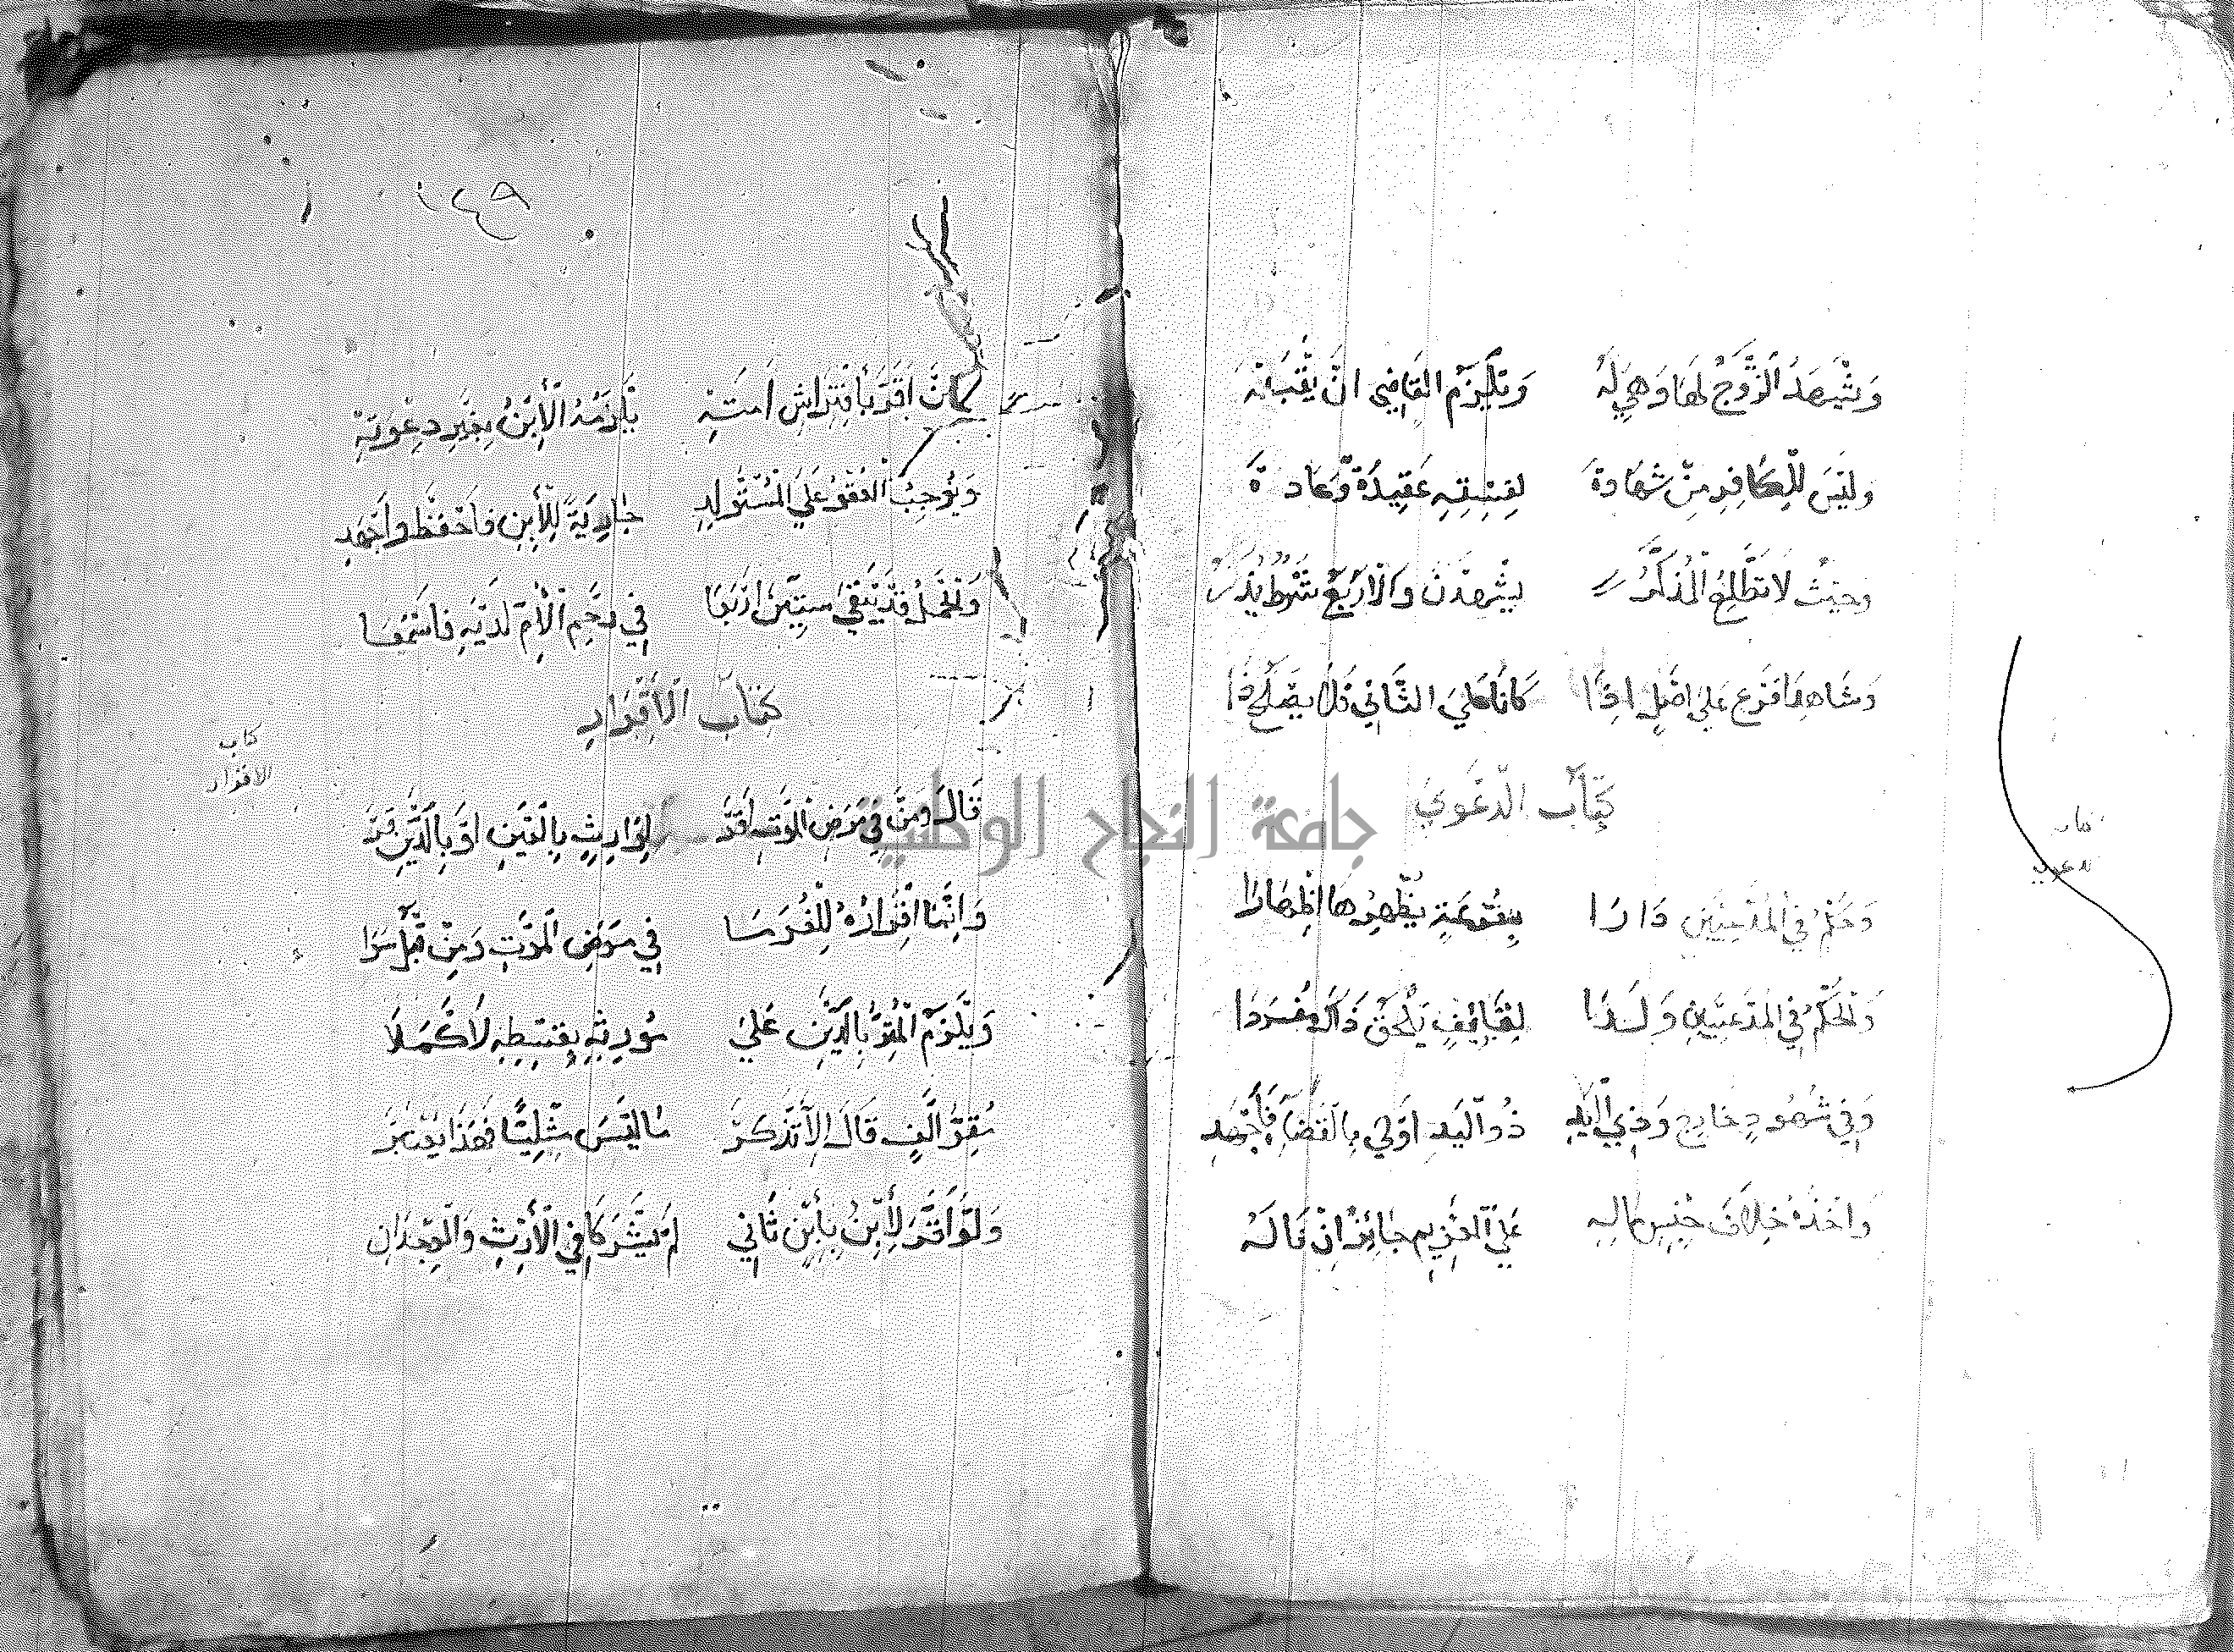 وَيَشْهَدُ الزَّوْجُ لَهَا وَهِيَ لَهُ وَيَلْزَمُ القَاضِي انْ يَقْبَلَهُ
وليْسَ لِلْكَافِرِ مِنْ شَهَادَةْ لِفِسْقِهِ عَقِيدَةً وَّعَادَةْ
وحيْثُ لَا تَطَّلِعُ الْمُذَكَّرُ يَشْهَدْنَ وَالْأَرْبَعُ شَرْطٌ يُذْكَرُ
وَشَاهِدَا فَرْعٍ عَلَى اصْلٍ اذَا كَانَا عَلَى الثَّانِي فَلَا يَصْلُحُ ذَا
كِتَابُ الدَّعْوَى
كتاب
الدعوى
وَحُكْمُ فِي الْمُدَّعِيَيْنِ دَارَا بِقُرْعَةٍ يُظْهِرُهَا اظْهَارَا
وَالْحُكْمُ فِي الْمُدَّعِيَيْنِ وَلَدَا لِقَائِفٍ يُلْحَقُ ذَاكَ مُفْرَدَا
وَفِي شُهُودِ خَارِجٍ وَذِي الْيَدِ ذُو الْيَدِ اوْلَى بِالْقَضَاءِ فَاجْهَدِ
وَاخْذُهُ خِلَافَ جِنْسِ مَالِهِ عَلَى الْغَرِيمِ جَائِزٌ انْ نَالَهُ
١٤٩
بِافْتِرَاشِ امَتِهْ يَلْزَمُهُ الْأِبْنُ بِغَيْرِ دِعْوَتِهْ
وَيُوجِبُ الْعُقْرُ عَلَى الْمُسْتَوْلِدِ جَارِيَةً لِلْأِبْنِ فَاحْفَظْ وَاجْهَدِ
وَالْحَمْلُ قَدْ يَبْقَى سِنِينَ ارْبَعَا فِي رَحِمِ الْأُمِّ لَدَيْهِ فَاسْمَعَا
كِتَابُ الْأِقْرَارِ
كتاب
الاقرار
قَالَ وَمَنْ فِي مَرَضِ الْمَوْتِ اقَرّْ لِوَارِثٍ بِالْعَيْنِ اوْ بِالدَّيْنِ قَرّْ
وَانَّمَا اقْرَارُهُ لِلْغُرَمَا فِي مَرَضِ الْمَوْتِ وَمِنْ قَبْلُ سَوَا
وَيَلْزَمُ الْمُقِرَّ بِالدَّيْنِ عَلَى مُورِثِهِ بِقِسْطِهِ لَا كَمَلَا
مُقِرُّ الْفٍ قَالَ الَّا تَذْكُرْ مَا لَيْسَ مِثْلِيًّا فَهَذَا يُعْتَبَرْ
وَلَوْ اقَرَّ لِأِبْنُ بِأِبْنٍ ثَانِي لَمْ يَشْتَرِكَا فِي الْأِرْثِ وَالْوِجْدَانِ